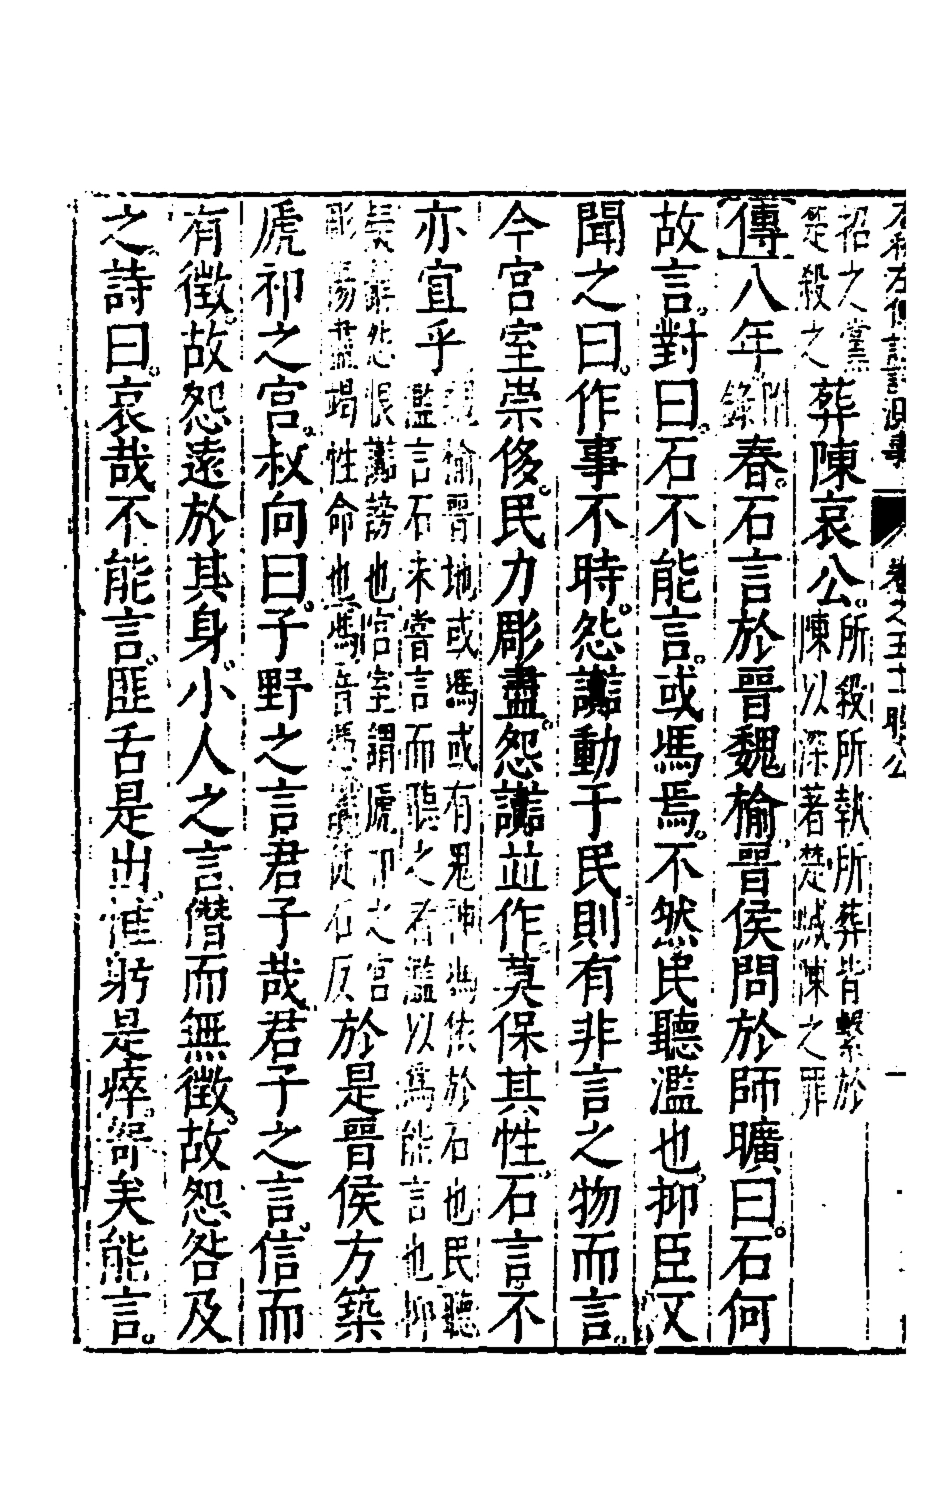 春秋左傳註評測義 卷之五十一昭公
招之黨
楚殺之
葬陳哀公
所殺所執所葬皆繫於
陳以深著楚滅陳之罪
傳八年
附
錄
春石言於晉魏榆晉侯問於師曠曰石何
故言對曰石不能言或馮焉不然民聽濫也抑臣又
聞之曰作事不時怨讟動于民則有非言之物而言
今宮室崇侈民力彫盡怨讟並作莫保其性石言不
亦宜乎
魏榆晉地或馮或有鬼神馮依於石也民聽
濫言石未嘗言而聽之者濫以為能言也抑
發辭怨恨讟謗也宮室謂虒祁之宮
彫傷盡竭性命也
於是晉侯方築
虒祁之宮叔向曰子野之言君子哉君子之言信而
有徵故怨遠於其身小人之言僭而無徵故怨咎及
之詩曰哀哉不能言匪舌是出惟躬是瘁哿矣能言